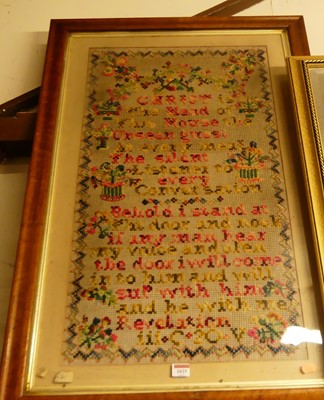 CHRIST
is the Head of
this House the
Unseen Guest
At every meal
The silent
Listener to
every
Conversation
Behold i stand at
the door and nock
if any man hear
my voice and open
the door i will come
in to him and will
sup with him
and he with me
Revelation
iii C 20 V